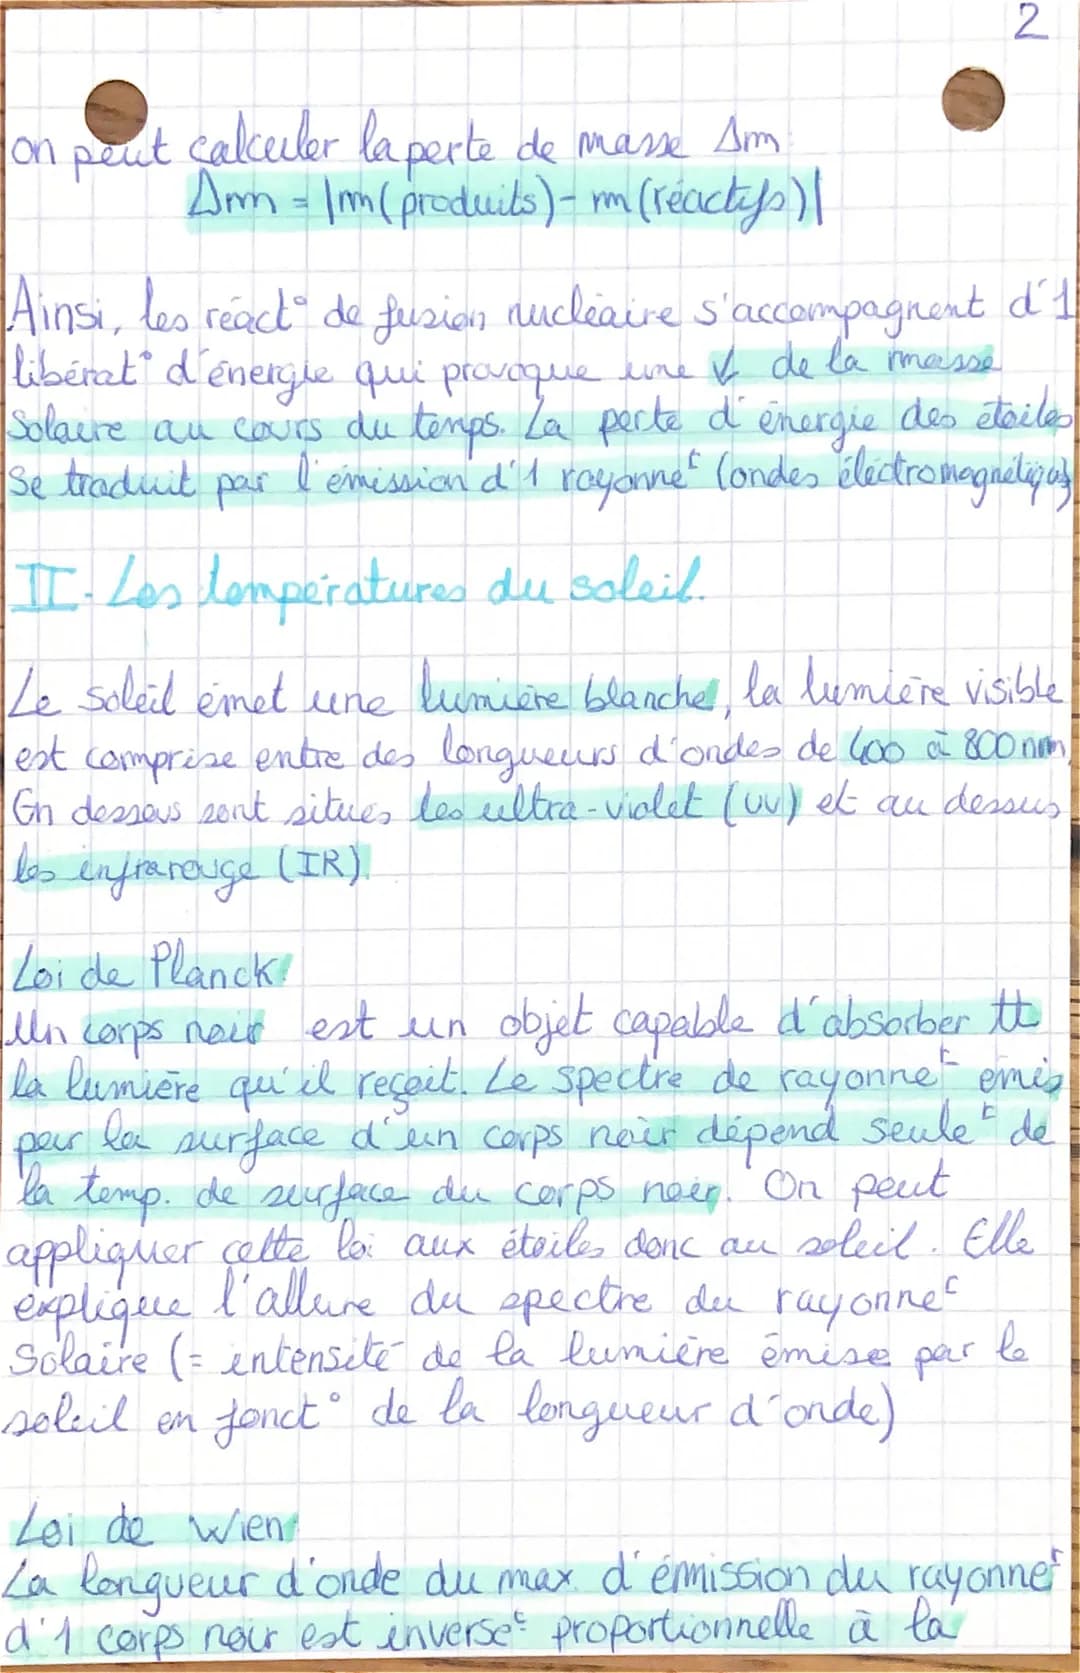 2
on peut calculer la perte de masse Δm
Δm = |m(produits) - m(réactifs)|
Ainsi, les réact° de fusion nucléaire s'accompagnent d'1
libérat° d'énergie qui provoque une ↓ de la masse
Solaire au cours du temps. La perte d'énergie des étoiles
se traduit par l'émission d'1 rayonneᵗ (ondes électromagnétiques)
II- Les températures du soleil.
Le soleil émet une lumière blanche, la lumière visible
est comprise entre des longueurs d'ondes de 400 à 800 nm,
En dessous sont situés les ultra-violet (UV) et au dessus
les infrarouge (IR).
Loi de Planck:
Un corps noir est un objet capable d'absorber tt
la lumière qu'il reçoit. Le spectre de rayonneᵗ émis
par la surface d'un corps noir dépend seuleᵗ de
la temp. de surface du corps noir. On peut
appliquer cette loi aux étoiles donc au soleil. Elle
explique l'allure du spectre du rayonneᵗ
Solaire (= intensité de la lumière émise par le
soleil en fonct° de la longueur d'onde)
Loi de Wien:
La longueur d'onde du max. d'émission du rayonneᵗ
d'1 corps noir est inverseᵗ proportionnelle à la